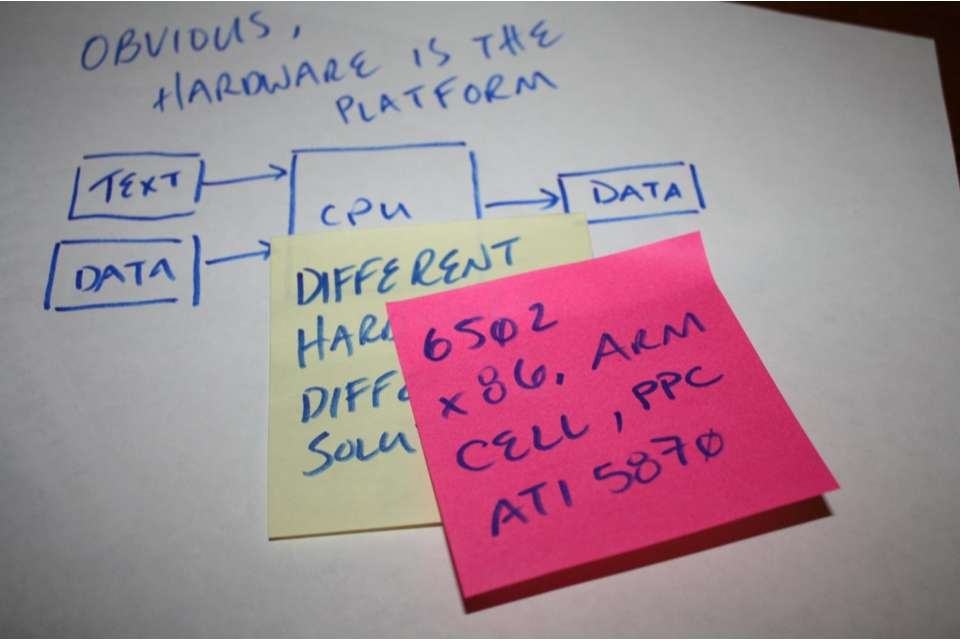 OBVIOUS,
HARDWARE IS THE
PLATFORM
TEXT
CPU
DATA
DATA
DIFFERENT
6502
x86, ARM
CELL, PPC
ATI 5870